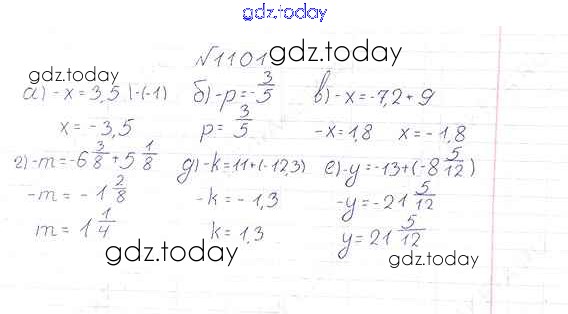 gdz.today
№1101 gdz.today
gdz.today
а) -x=3,5 |·(-1) б) -p=-3/5 в) -x=-7,2+9
x=-3,5 p=3/5 -x=1,8 x=-1,8
г) -m=-6 3/8+5 1/8 д) -k=11+(-12,3) е) -y=-13+(-8 5/12)
-m=-1 2/8 -k=-1,3 -y=-21 5/12
m=1 1/4 k=1,3 y=21 5/12
gdz.today gdz.today